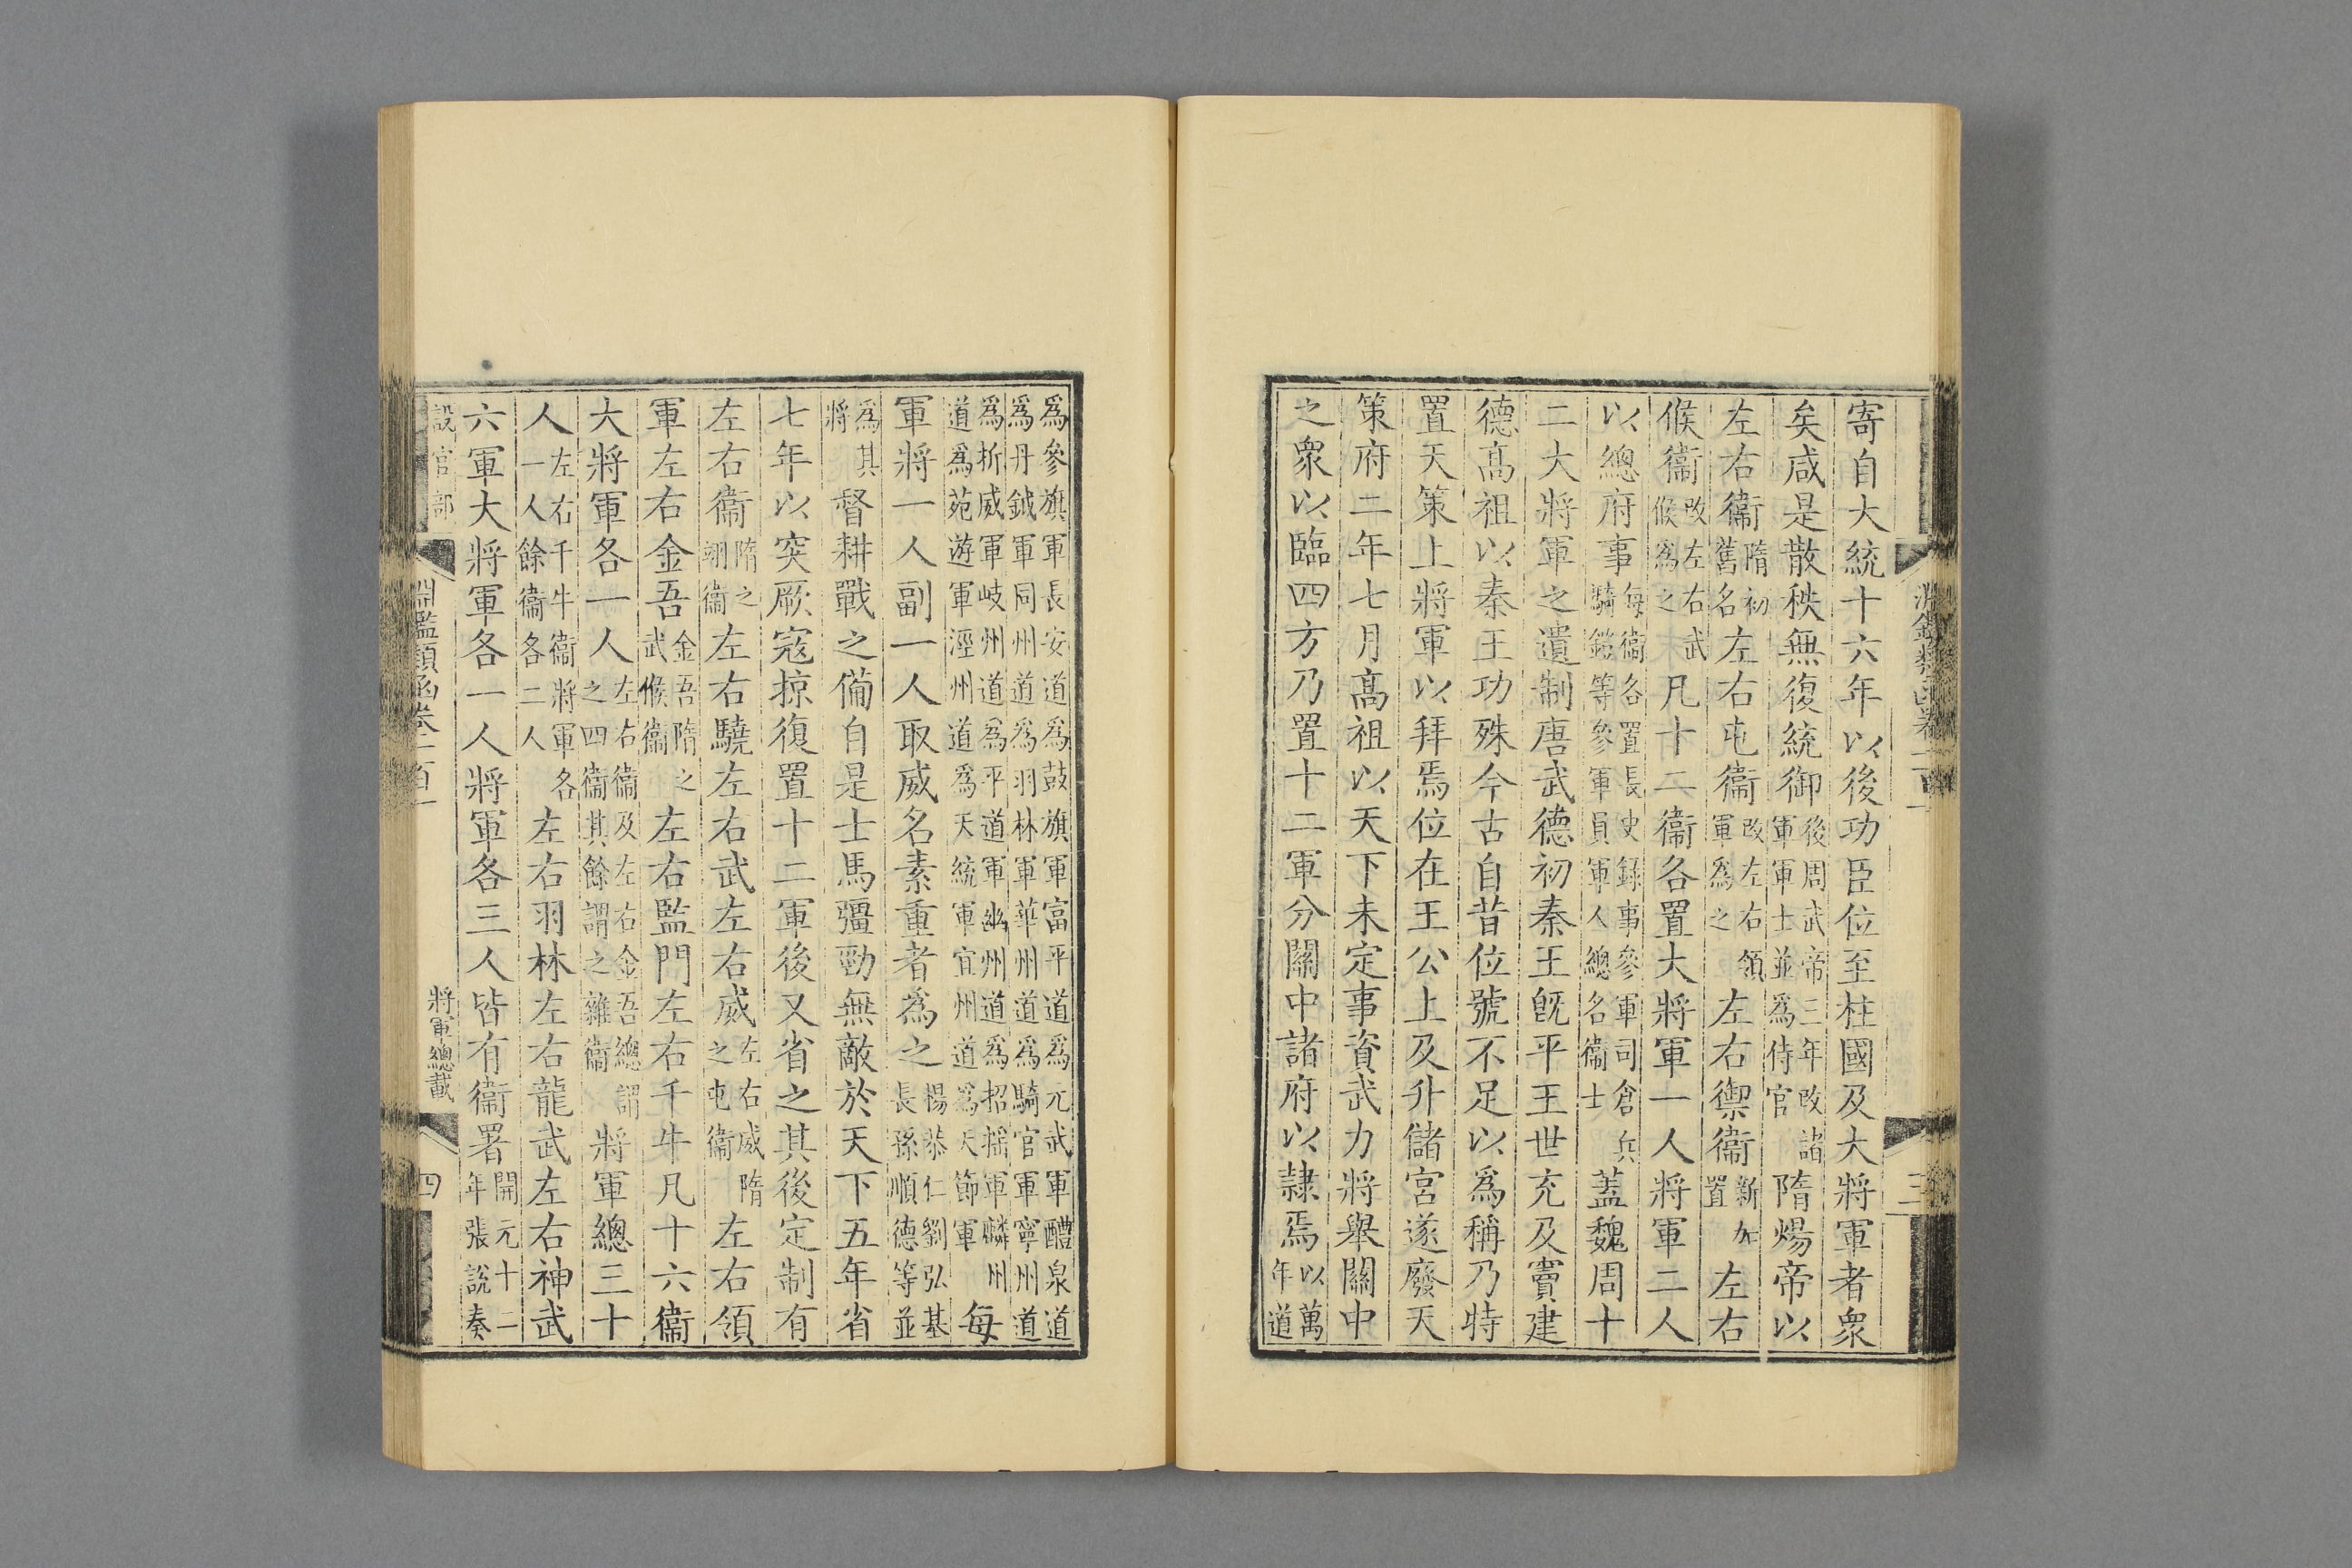 寄自大統十六年以後功臣位至柱國及大將軍者衆
矣咸是散秩無復統御後周武帝三年改諸軍軍士並爲侍官隋煬帝以
左右衞隋初舊名左右屯衞改左右領軍爲之左右禦衞新加置左右
候衞改左右武候爲之凡十二衞各置大將軍一人將軍二人
以總府事每衞各置長史錄事參軍司倉兵騎鎧等參軍員軍人總名衞士蓋魏周十
二大將軍之遺制唐武德初秦王旣平王世充及竇建
德高祖以秦王功殊今古自昔位號不足以爲稱乃特
置天策上將軍以拜焉位在王公上及升儲宮遂廢天
策府二年七月高祖以天下未定事資武力將舉關中
之衆以臨四方乃置十二軍分關中諸府以隷焉以萬年道
爲參旗軍長安道爲鼓旗軍富平道爲元武軍醴泉道
爲丹鉞軍同州道爲羽林軍華州道爲騎官軍寧州道
爲折威軍岐州道爲平道軍豳州道爲招搖軍麟州
道爲苑遊軍涇州道爲天統軍宜州道爲天節軍每
軍將一人副一人取威名素重者爲之楊恭仁劉弘基長孫順德等並
爲其將其督耕戰之備自是士馬彊勁無敵於天下五年省
七年以突厥寇掠復置十二軍後又省之其後定制有
左右衞隋之翊衞左右驍左右武左右威左右威隋之屯衞左右領
軍左右金吾金吾隋之武候衞左右監門左右千牛凡十六衞
大將軍各一人左右衞及左右金吾總謂之四衞其餘謂之雜衞將軍總三十
人左右千牛衞將軍各一人餘衞各二人左右羽林左右龍武左右神武
六軍大將軍各一人將軍各三人皆有衞署開元十二年張說奏
設官部
淵鑑類函卷一百一
將軍總載
四